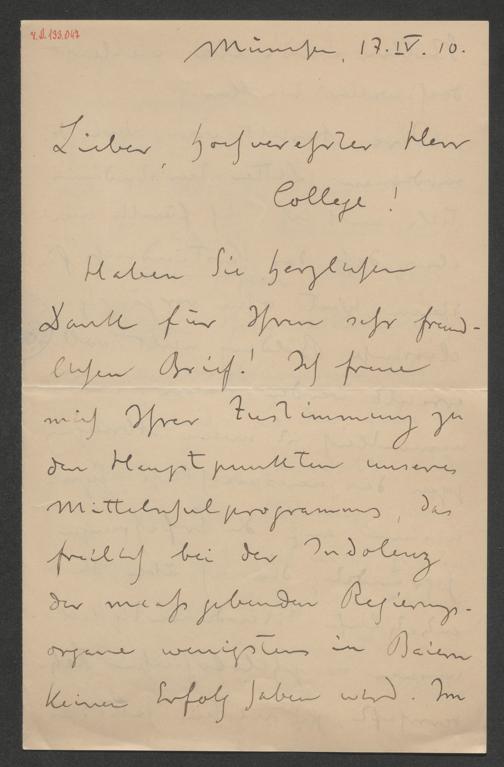 V.A.133.047
München, 17.IV.10.
Lieber, hochverehrter Herr
College!
Haben Sie herzlichen
Dank für Ihren sehr freund-
lichen Brief! Ich freue
mich Ihrer Zustimmung zu
den Hauptpunkten unseres
Mittelschulprogramms, das
freilich bei der Indolenz
der maassgebenden Regierungs-
organe wenigstens in Baiern
keinen Erfolg haben wird. Im